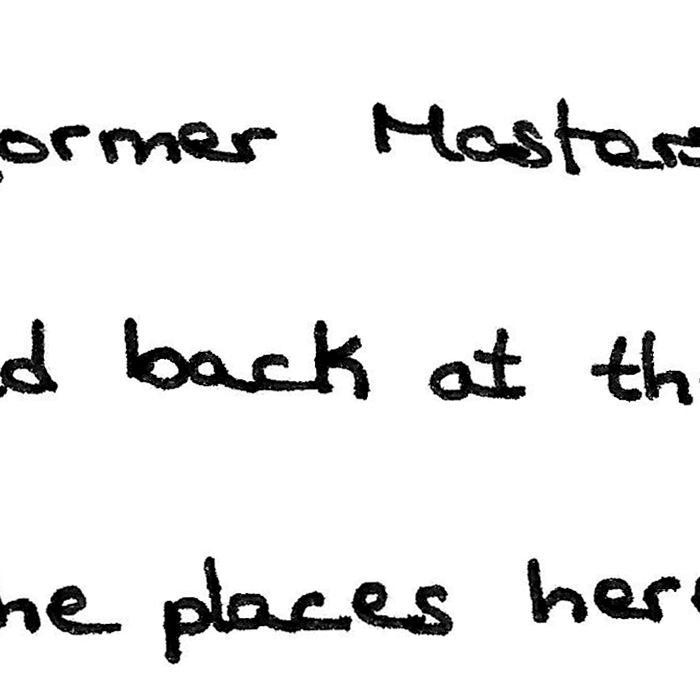 ormer Masters
d back at th
he places her